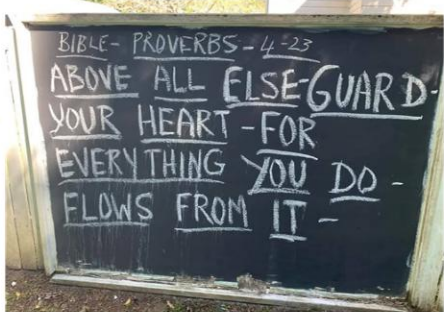 BIBLE- PROVERBS-4-23
ABOVE ALL ELSE-GUARD-
YOUR HEART-FOR
EVERYTHING YOU DO -
FLOWS FROM IT -